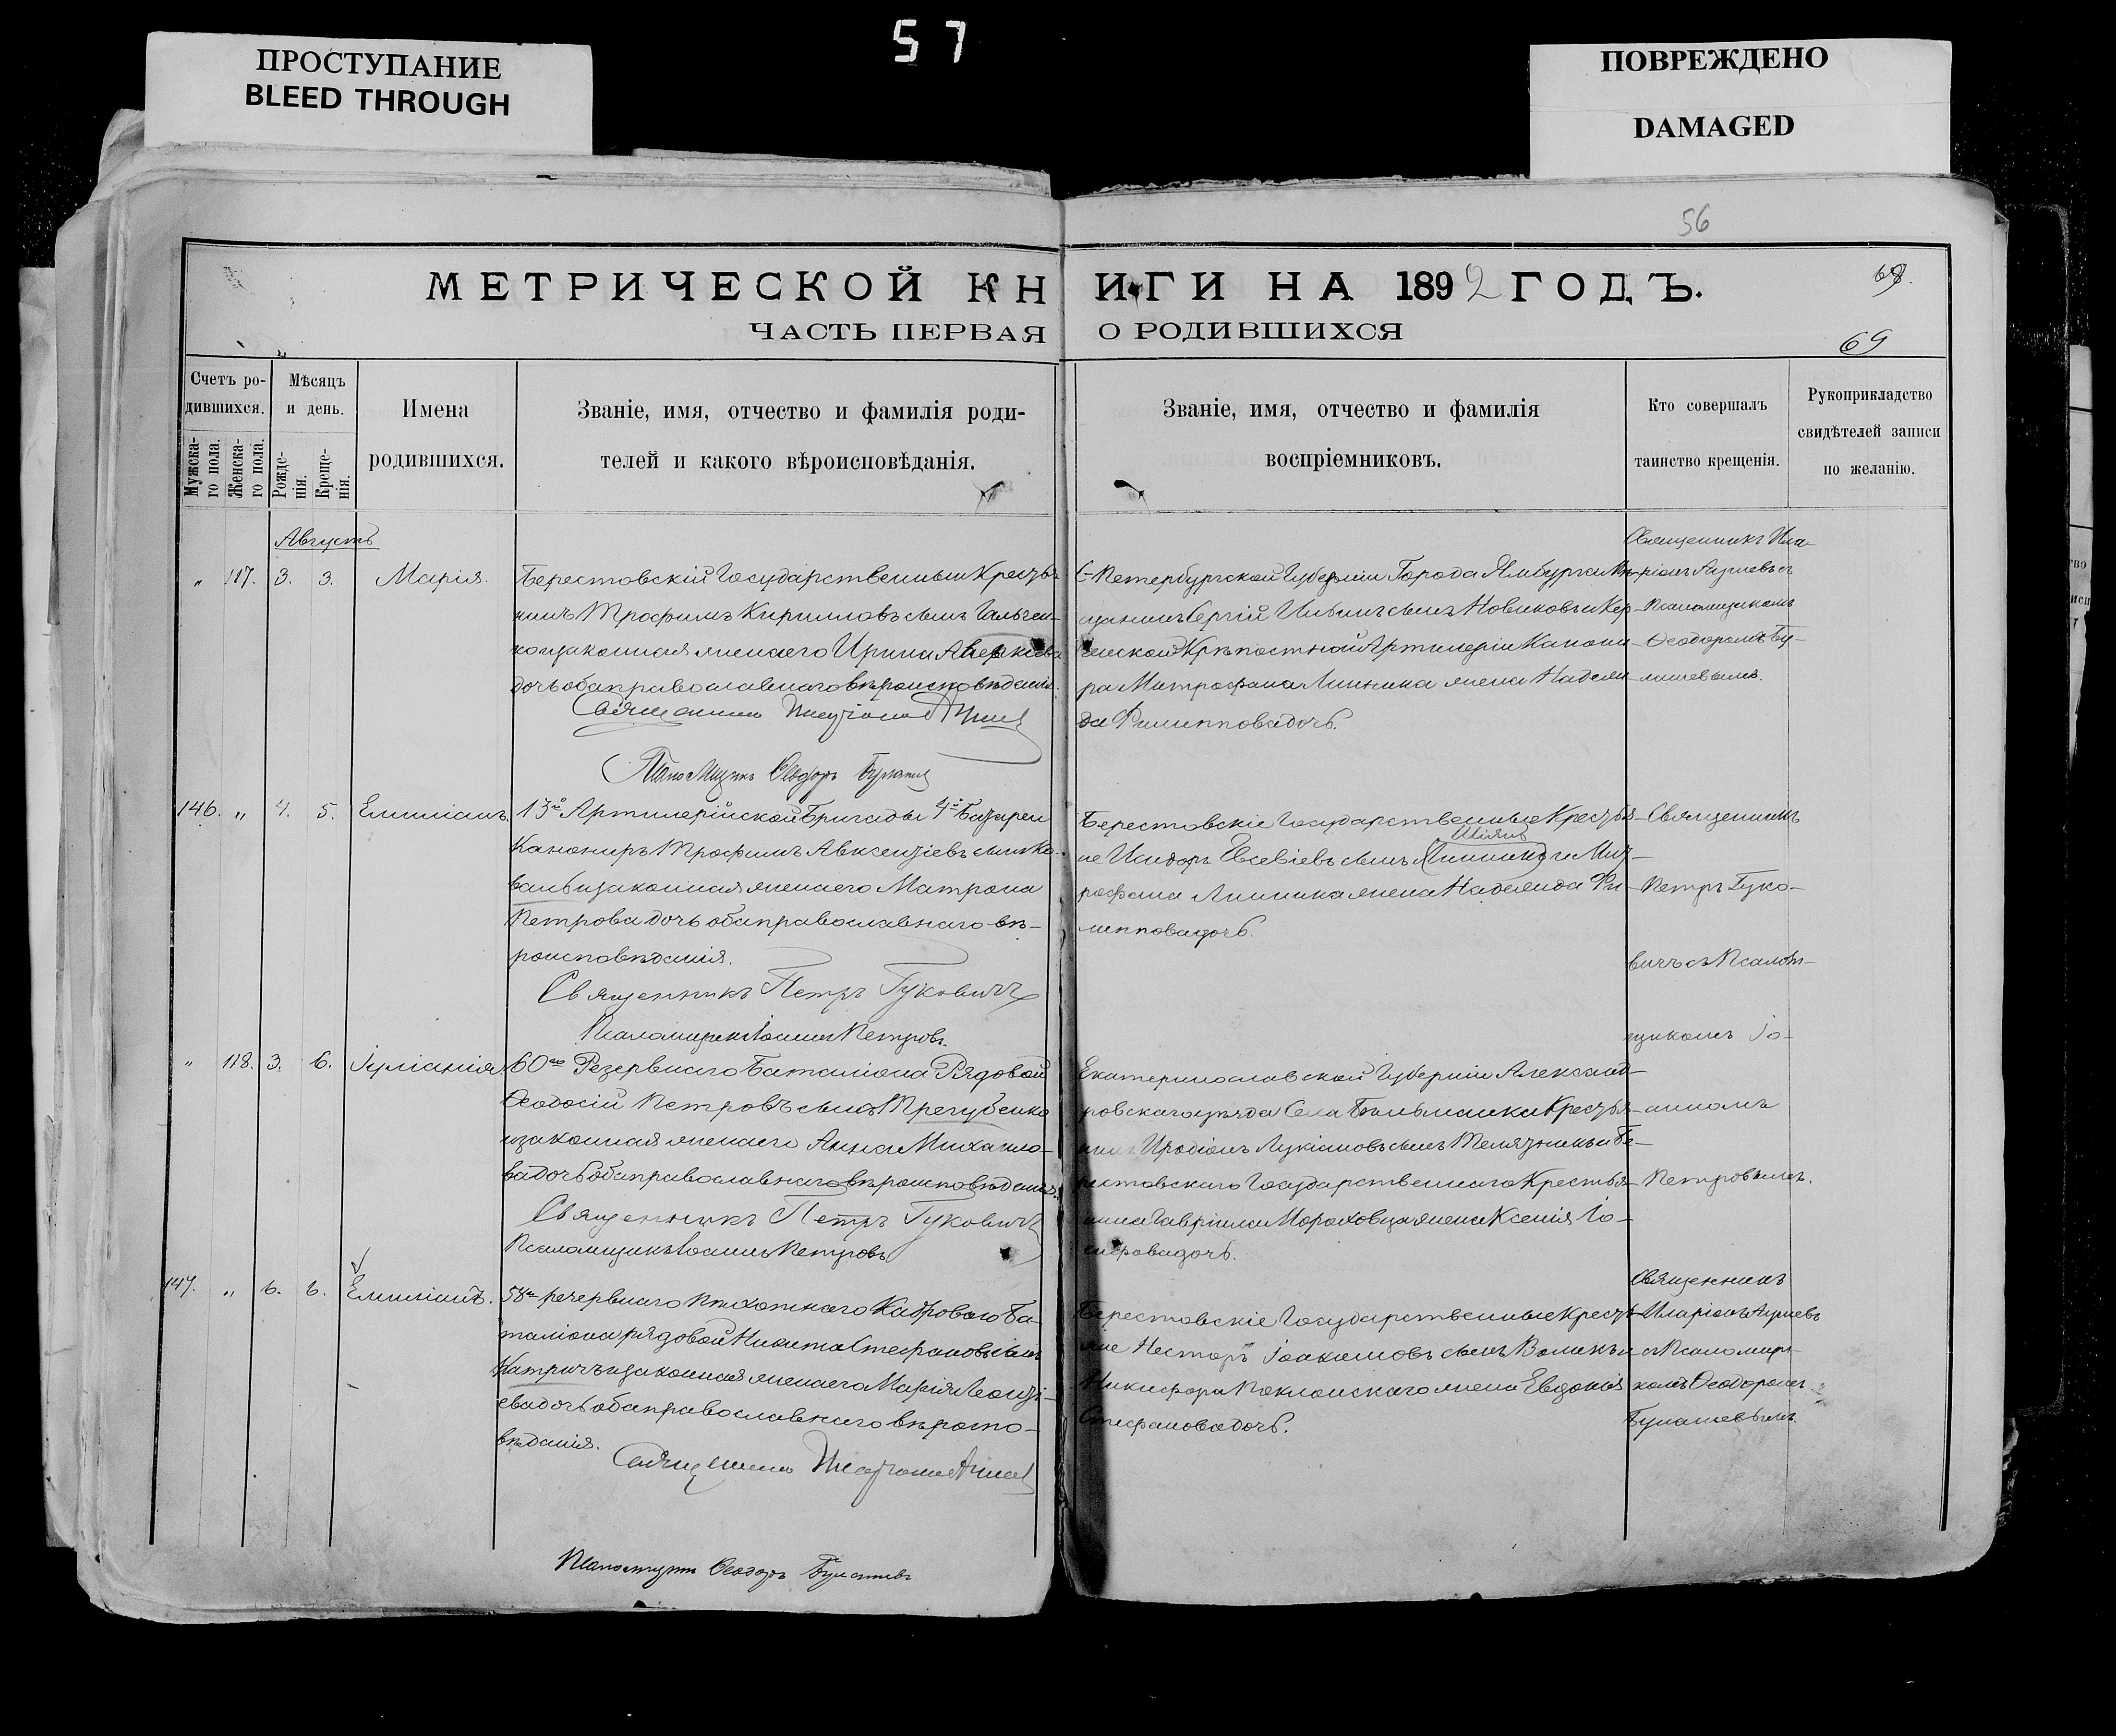 57
ПРОСТУПАНИЕ
BLEED THROUGH
ПОВРЕЖДЕНО
DAMAGED
56
МЕТРИЧЕСКОЙ КНИГИ НА 1892 ГОДЪ.
68.
ЧАСТЬ ПЕРВАЯ О РОДИВШИХСЯ
69
Счетъ ро-
дившихся.
Мужска-
го пола.
Женска-
го пола.
Мѣсяцъ
и день.
Рожде-
нія.
Креще-
нія.
Имена
родившихся.
Званіе, имя, отчество и фамилія роди-
телей и какого вѣроисповѣданія.
Званіе, имя, отчество и фамилія
воспріемниковъ.
Кто совершалъ
таинство крещенія.
Рукоприкладство
свидѣтелей записи
по желанію.
Августъ
„ 117. 3. 3. Марія.
Берестовскій Государственный Кресть
нинъ Трофимъ Кирилловъ сынъ
ко и законная жена его Ирина
дочь оба православнаго вѣроисповѣданія.
Священникъ
Псаломщикъ Ѳеодоръ
С-Петербургской Губерніи Города Ямбурга Мѣ-
щанинъ Сергій сынъ Новиковъ и Кер-
ченской Крѣпостной Артилеріи Канони-
ра Митрофана Линника жена Надеж-
да Филиппова дочь.
Священникъ Ила-
ріонъ съ
Псаломщикомъ
Ѳеодоромъ Бу-
лашевымъ.
146. „ 4. 5. Емиліанъ.
13й Артилерійской Бригады 4й Батареи
Канониръ Трофимъ Авксентіевъ сынъ Ко-
валь и законная жена его Матрона
Петрова дочь оба православнаго вѣ-
роисповѣданія.
Священникъ Петръ Гуковичъ
Псаломщикъ Іоаннъ Петровъ.
Берестовскіе Государственные Крестья-
не Исидоръ Евсевіевъ сынъ и Мит-
рофана Линника жена Надежда Фи-
липпова дочь.
Священникъ
Петръ Гуко-
вичъ съ Псалом-
щикомъ Іо-
анномъ
Петровымъ.
„ 118. 3. 6. Іуліанія.
60го Резервнаго Баталіона Рядовой
Ѳеодосій Петровъ сынъ Трегубенко
и законная жена его Анна Михаило-
ва дочь оба православнаго вѣроисповѣданія.
Священникъ Петръ Гуковичъ
Псаломщикъ Іоаннъ Петровъ
Екатеринославской Губерніи Александ-
ровскаго уѣзда Села Бѣльманки Крестья-
нинъ Иродіонъ Лукіановъ сынъ и Бе-
рестовскаго Государственнаго Крестья-
нина Гавріила Мороховца жена Ксенія Іо-
сифова дочь.
147. „ 6. 6. Емиліанъ.
58го резервнаго Пѣхотнаго Кадроваго Ба-
таліона рядовой Никита Стефановъ сынъ
Катричъ и законная жена его Марія Леонті-
ева дочь оба православнаго вѣроиспо-
вѣданія.
Священникъ
Псаломщикъ Ѳеодоръ Булашевъ
Берестовскіе Государственные Крестья-
яне Несторъ Іоакимовъ сынъ Воликъ и
Никифора Поклонскаго жена Евдокія
Стефанова дочь.
Священникъ
Иларіонъ
съ Псаломщи-
комъ Ѳеодоромъ
Булашевымъ